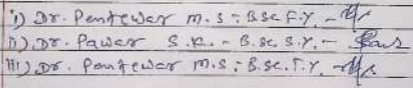 i) Dr. Pentewar M.S : B.Sc F.Y. -
ii) Dr. Pawar S.R. - B.Sc. S.Y. -
iii) Dr. Pentewar M.S : B.Sc. T.Y. -